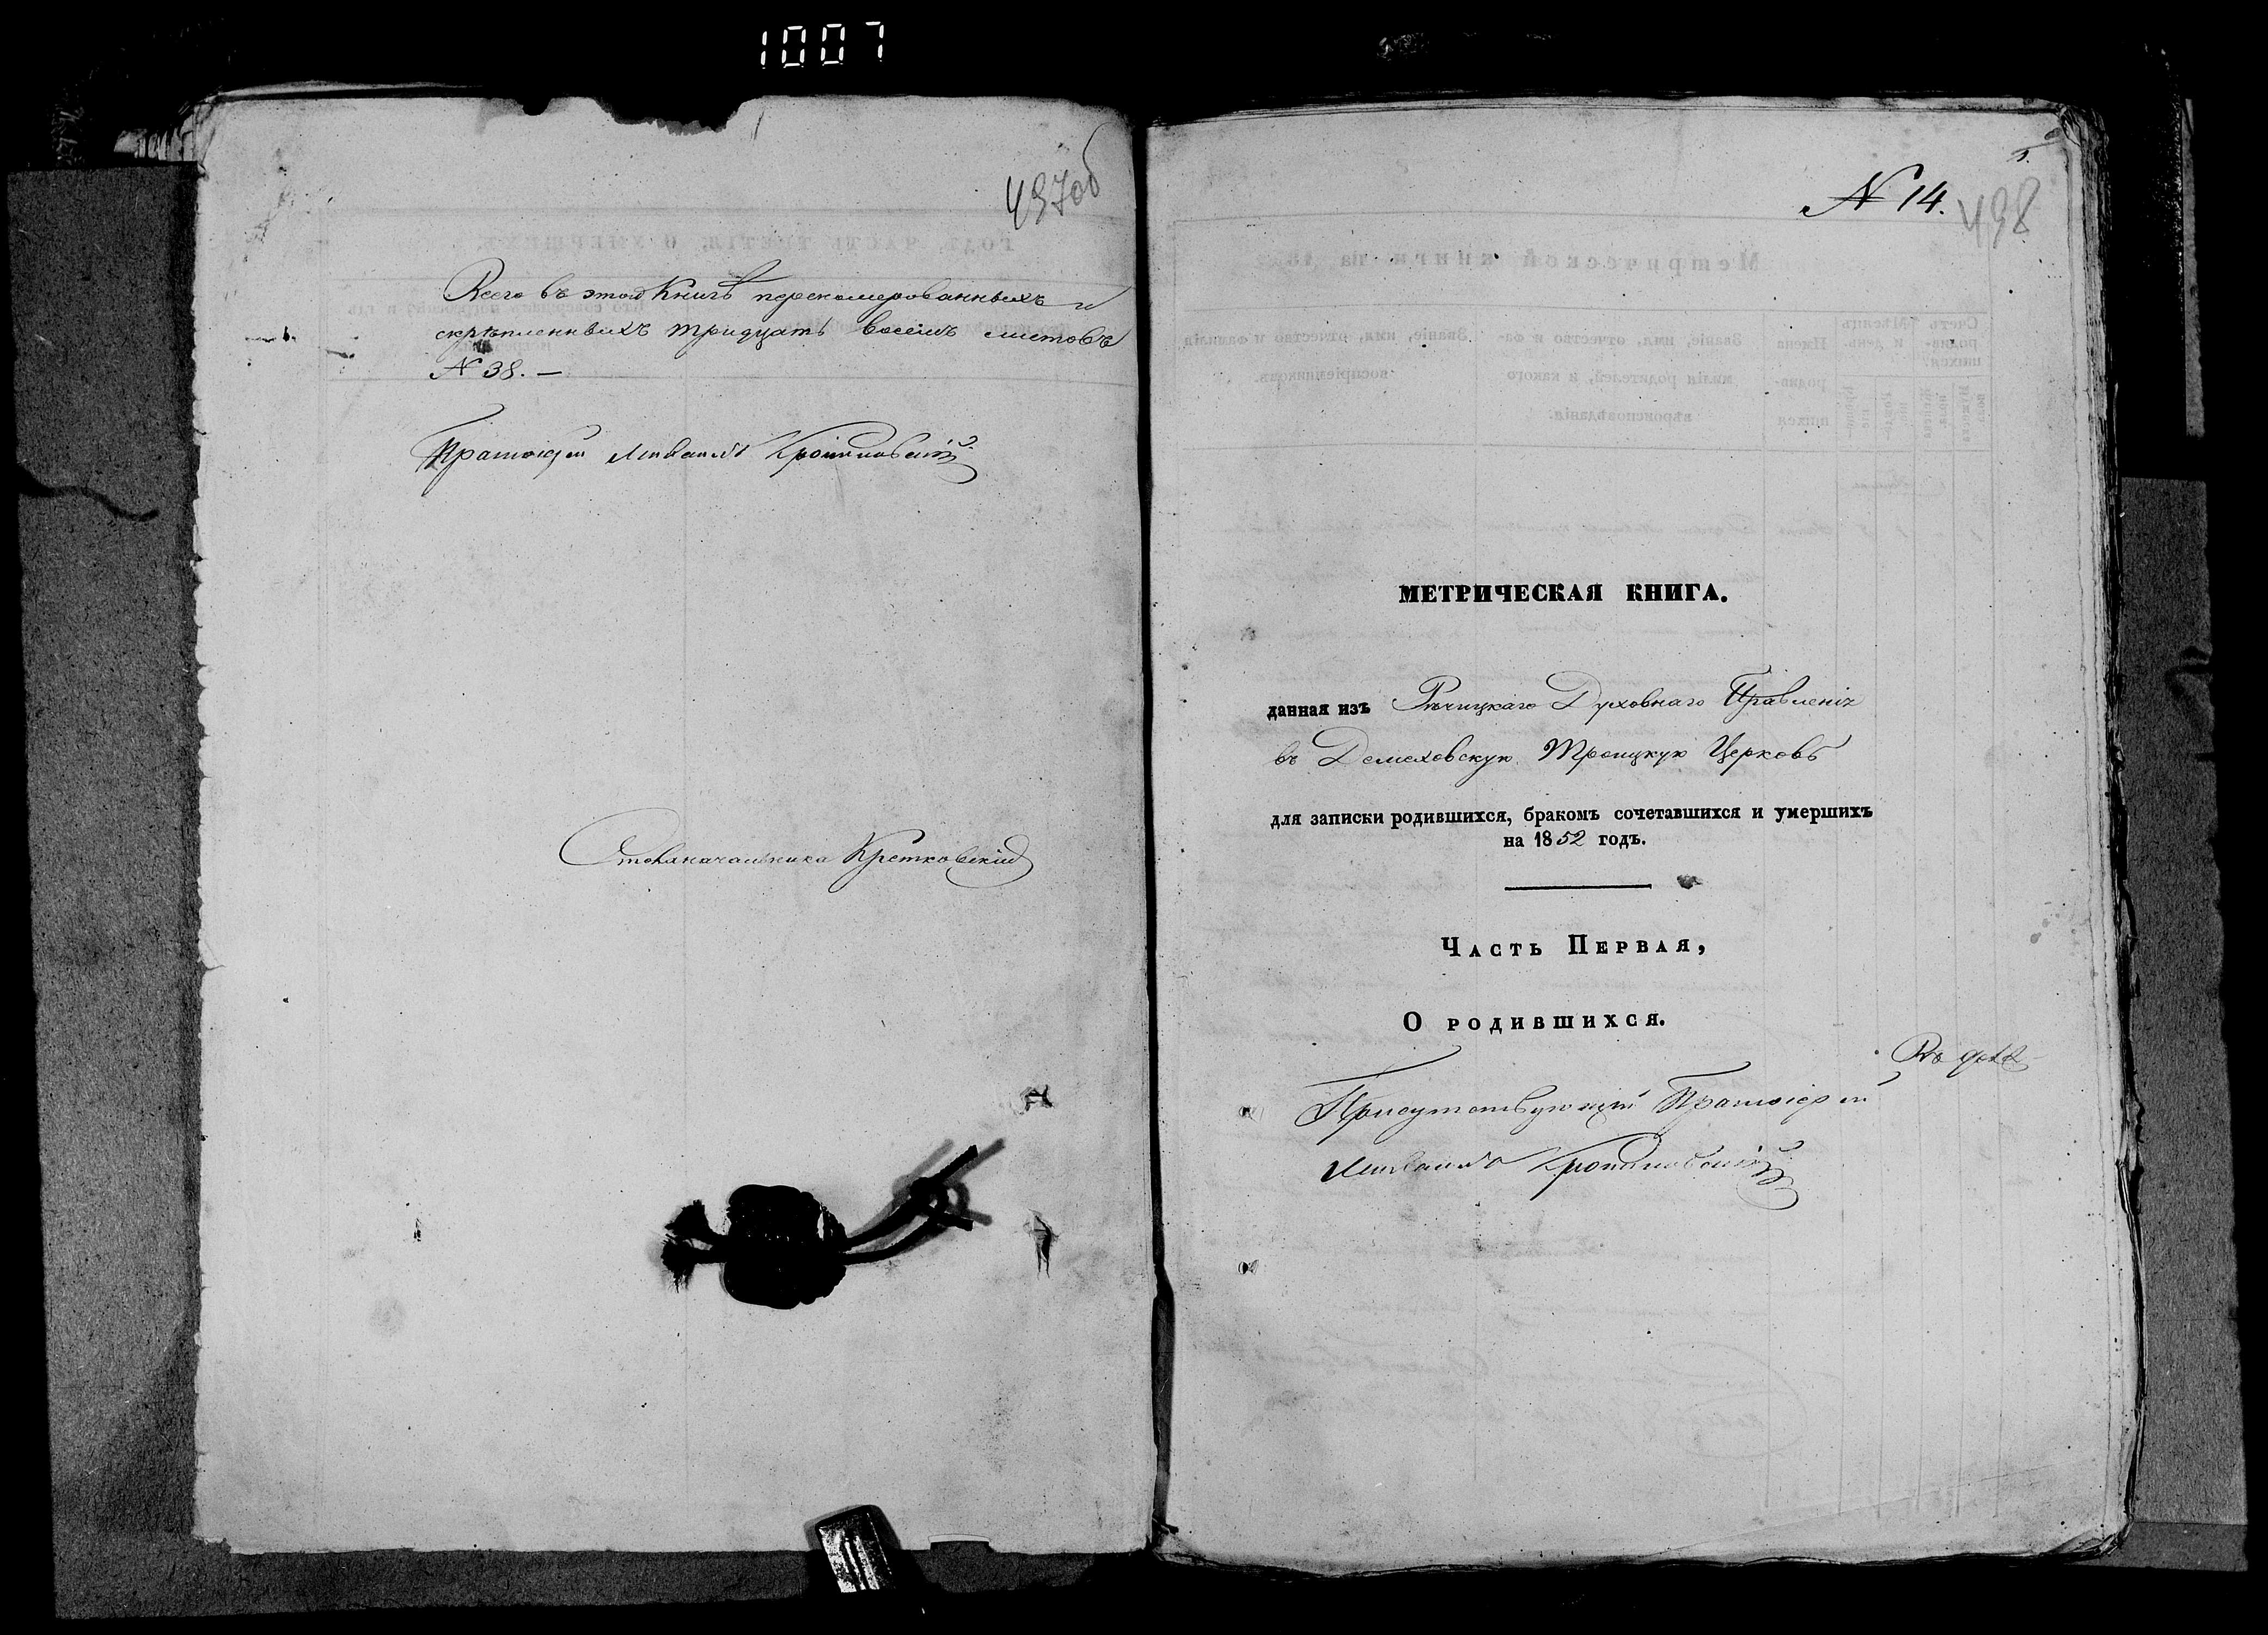 1007
497об
Всего въ этой Книгѣ переномерованныхъ и
скрѣпленныхъ тридцать восемь листовъ
№ 38. —
Протоіерей Михаилъ
Столоначальника Кретковскій
№ 14.
498
МЕТРИЧЕСКАЯ КНИГА.
данная изъ Рѣчицкаго Духовнаго Правленія
въ Демеховскую Троицкую Церковь
для записки родившихся, бракомъ сочетавшихся и умершихъ
на 1852 годъ.
Часть Первая,
О родившихся.
Присутствующій Протоіерей
Михаилъ